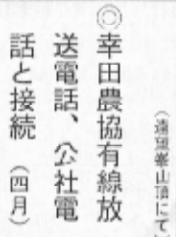 (遠望峯山頂にて)
◎幸田農協有線放
送電話、公社電
話と接続 (四月)